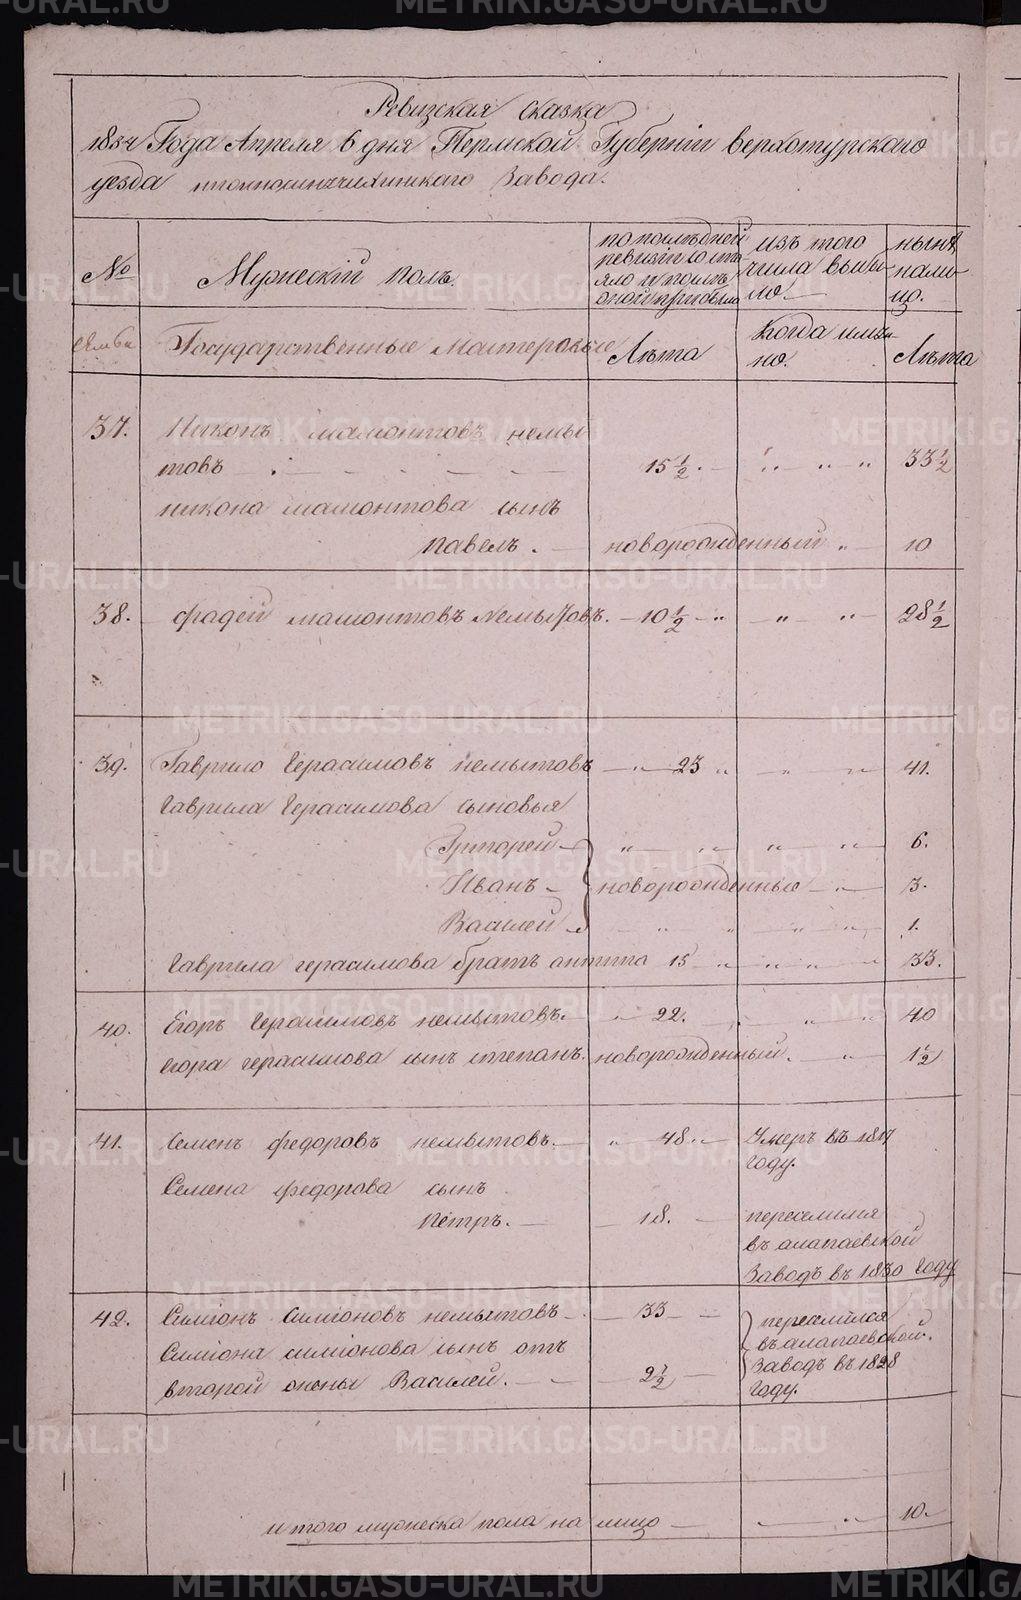 Ревизская сказка
1834 Года Апреля 6 дня Пермской Губернiи верхотурского
уезда нижносинячихинского Завода.
№
Мужескiй полъ.
по последней
ревизiи состо
яло и послѣ
оной прибыло
изъ того
числа выбы
ло.
нынѣ
нали
цо.
семьи
Государственные Мастеровые
Лѣта
Когда имян
но.
Лѣта
37.
Никонъ мамонтовъ немы
товъ 15 1/2. 33 1/2
никона мамонтова сынъ
Павелъ. новорожденный 10
38. фадей мамонтовъ немытовъ. 10 1/2 28 1/2
39. Гаврило Герасимовъ немытовъ 23 41.
Гаврила Герасимова сыновья
Григорей 6.
Иванъ новорожденные 3.
Василей 1.
Гаврила герасимова братъ антипа 15 33.
40. Егоръ Герасимовъ немытовъ. 22. 40
Егора герасимова сынъ степанъ. новорожденный. 1 1/2
41. Семенъ федоровъ немытовъ. 48. Умеръ въ 1817
году.
Семена федорова сынъ
Петръ. 18. переселился
въ алапаевской
Заводъ въ 1830 Году
42. Симiонъ Симiоновъ немытовъ 33 переселился
въ алапаевской
Симiона симiонова сынъ отъ
Заводъ въ 1828
второй жены Василей. 2 1/2
Году.
итого мужеска пола на лицо 10.
METRIKI.GASO-URAL.RU